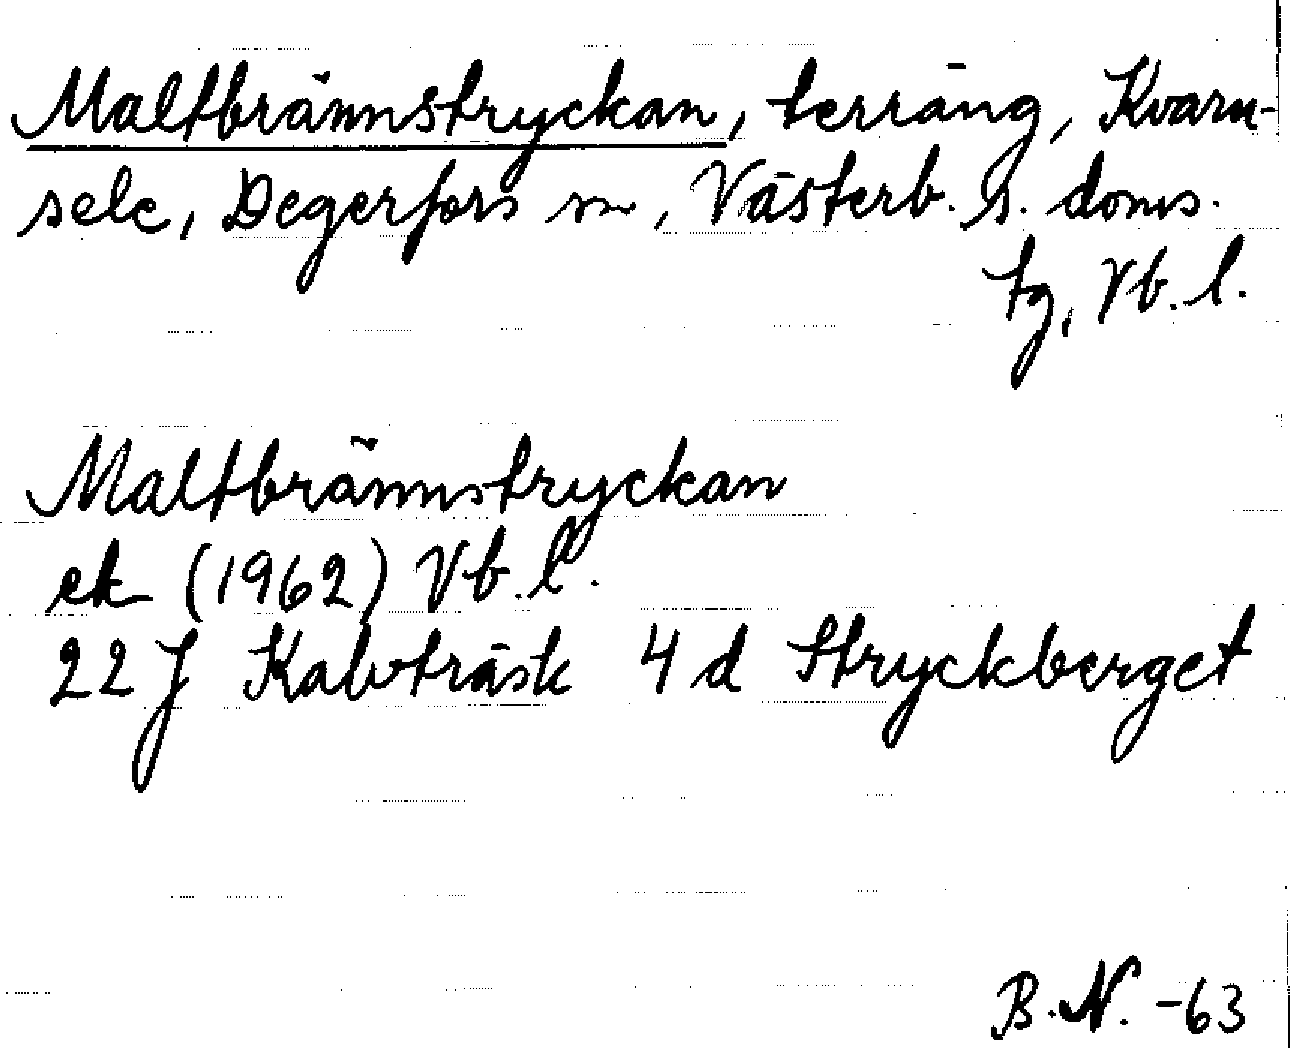 Maltbrännstryckan, terräng, Kvarn-
sele, Degerfors sn, Västerb. s. doms.
tg, Vb. l.
Maltbrännstryckan
ek (1962) Vb. l.
22 J Kalvträsk 4 d Stryckberget
B. N. -63